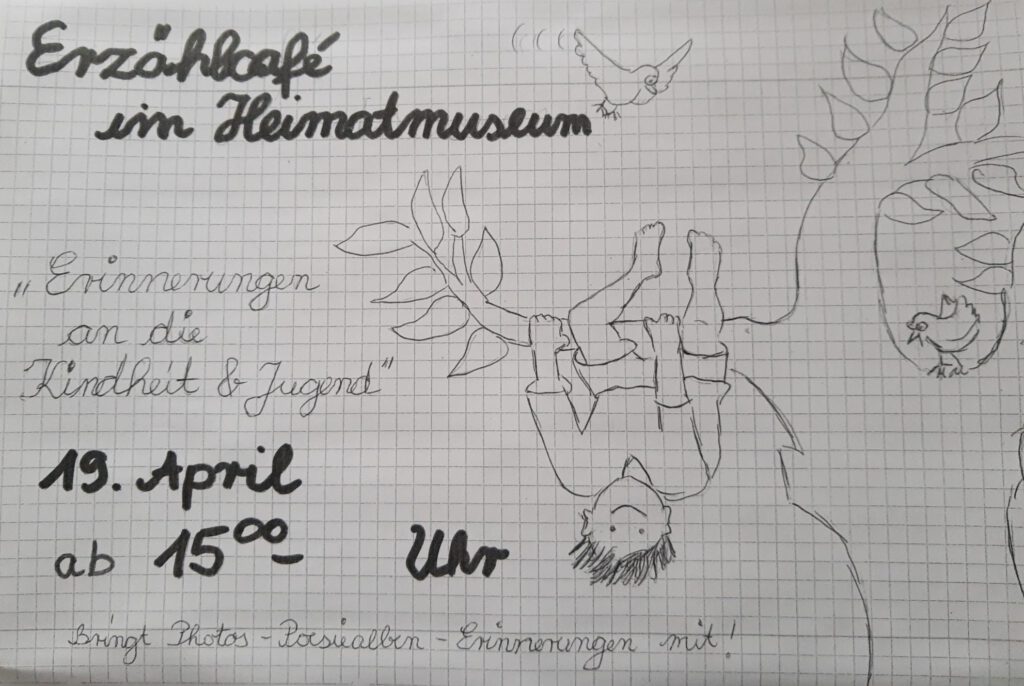 Erzählcafé
im Heimatmuseum
„Erinnerungen
an die
Kindheit & Jugend"
19. April
ab 15⁰⁰ Uhr
Bringt Photos - Poesiealben - Erinnerungen mit!